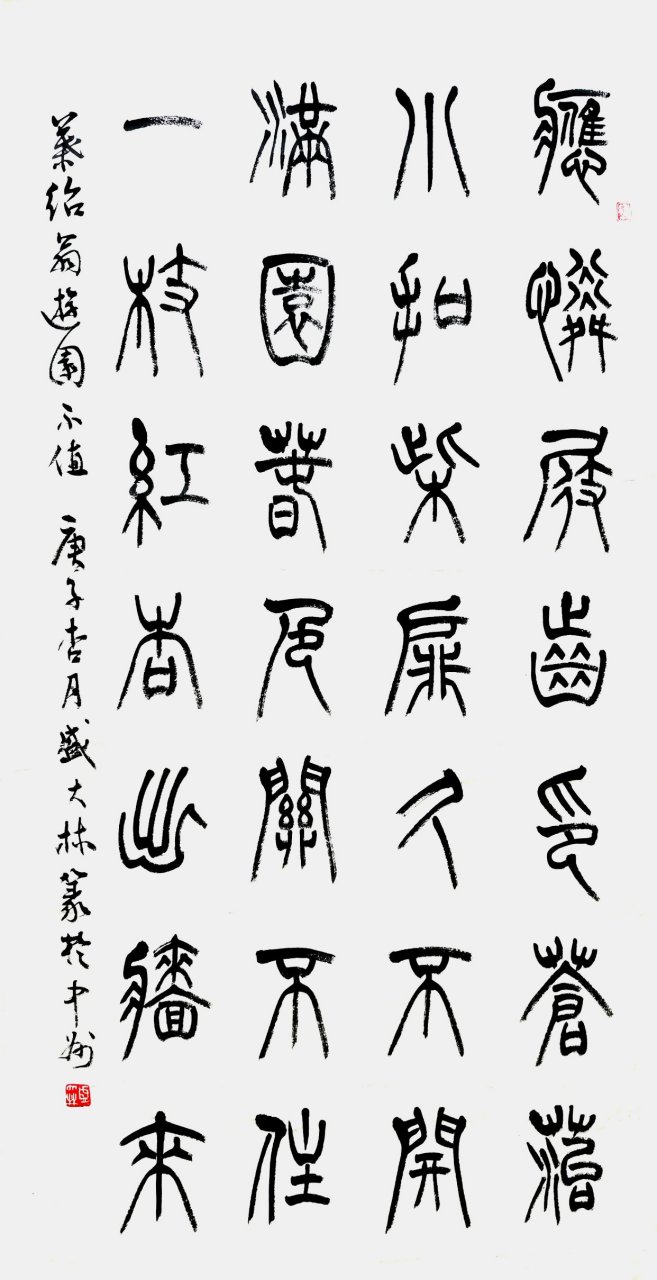 應憐屐齒印蒼菭
小扣柴扉久不開
滿園春色關不住
一枝紅杏出牆來
葉紹翁遊園不值 庚子杏月盛大林篆於中州